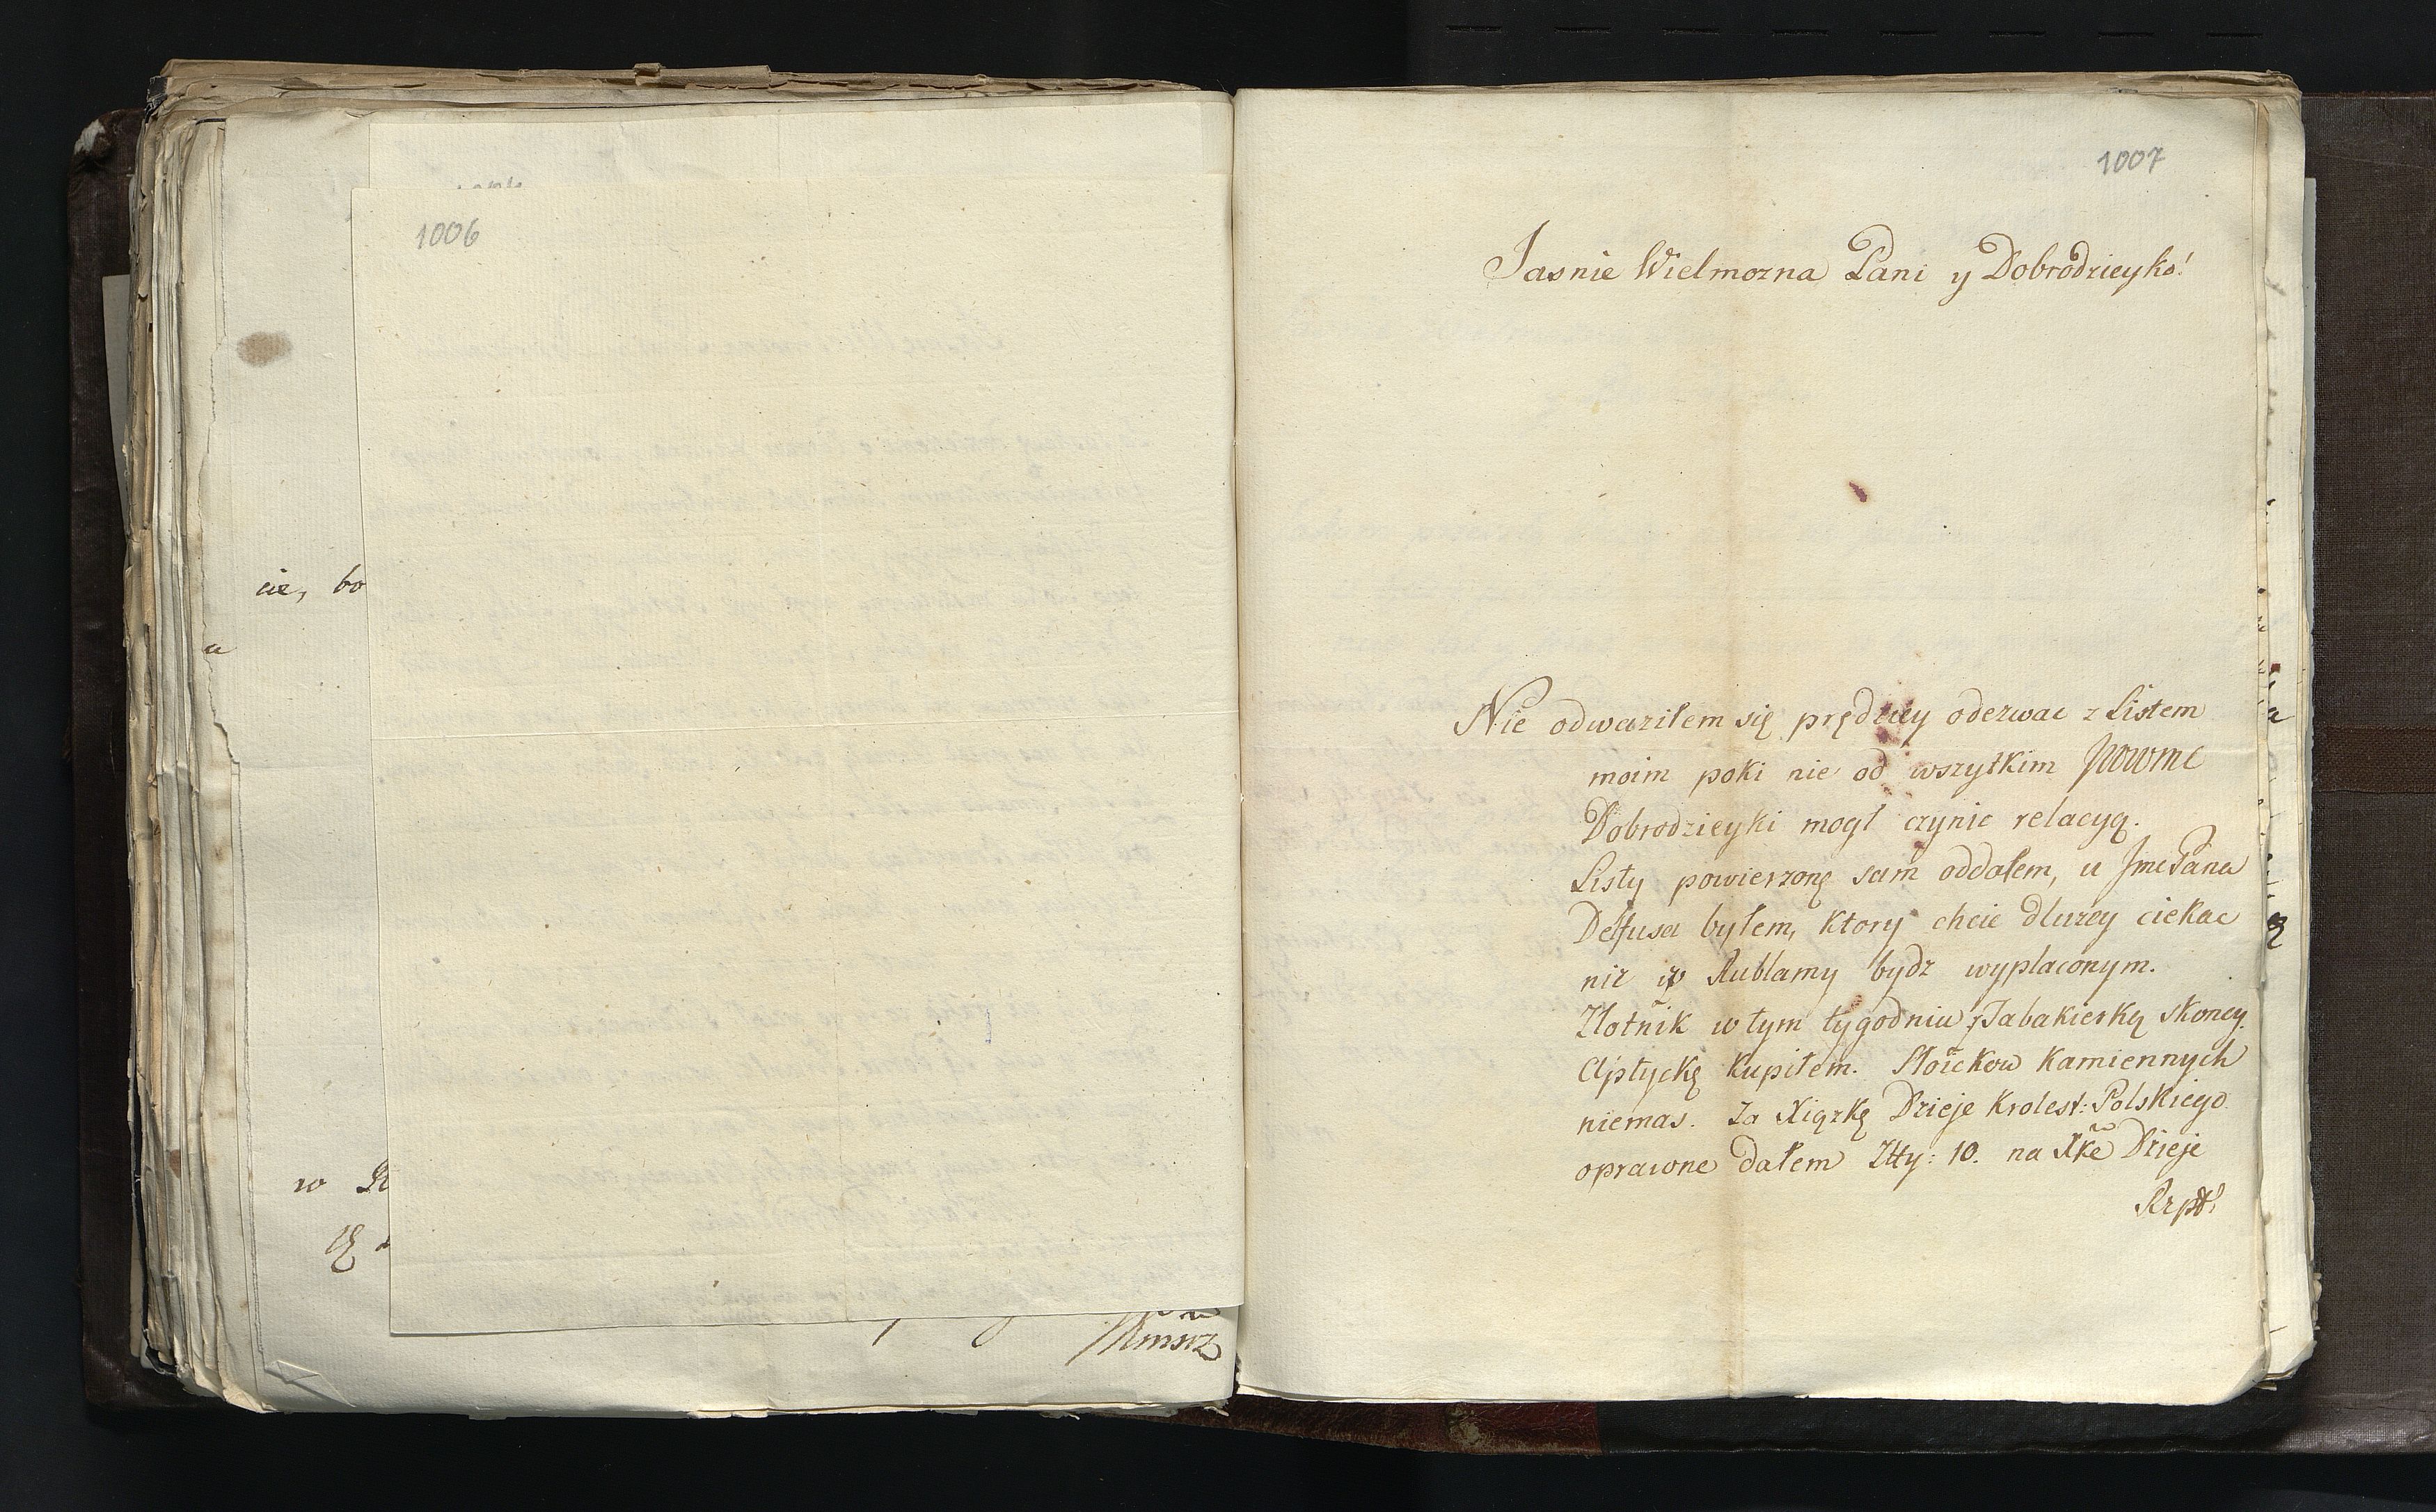 1006
cie, bo
a
w
1007
Jasnie Wielmozna Pani y Dobrodzieyko!
Nie odwaziłem się prędzey odezwac z Listem
moim poki nie od wszytkim JWWMC
Dobrodzieyki mogł czynic relacyą.
Listy powierzonę sam oddałem, u Jmc Pana
Delfusa byłem, ktory chcie dluzey ciekac
niz w Rublamy bydz wyplaconym.
Złotnik w tym tygodniu Tabakierkę skonczy.
Aptyckę kupiłem. Słoickow kamiennych
niemas. Za Xiązkę Dzieje Krolest: Polskiego
oprawne dałem Złty: 10. na Xke Dzieje
Rzptt